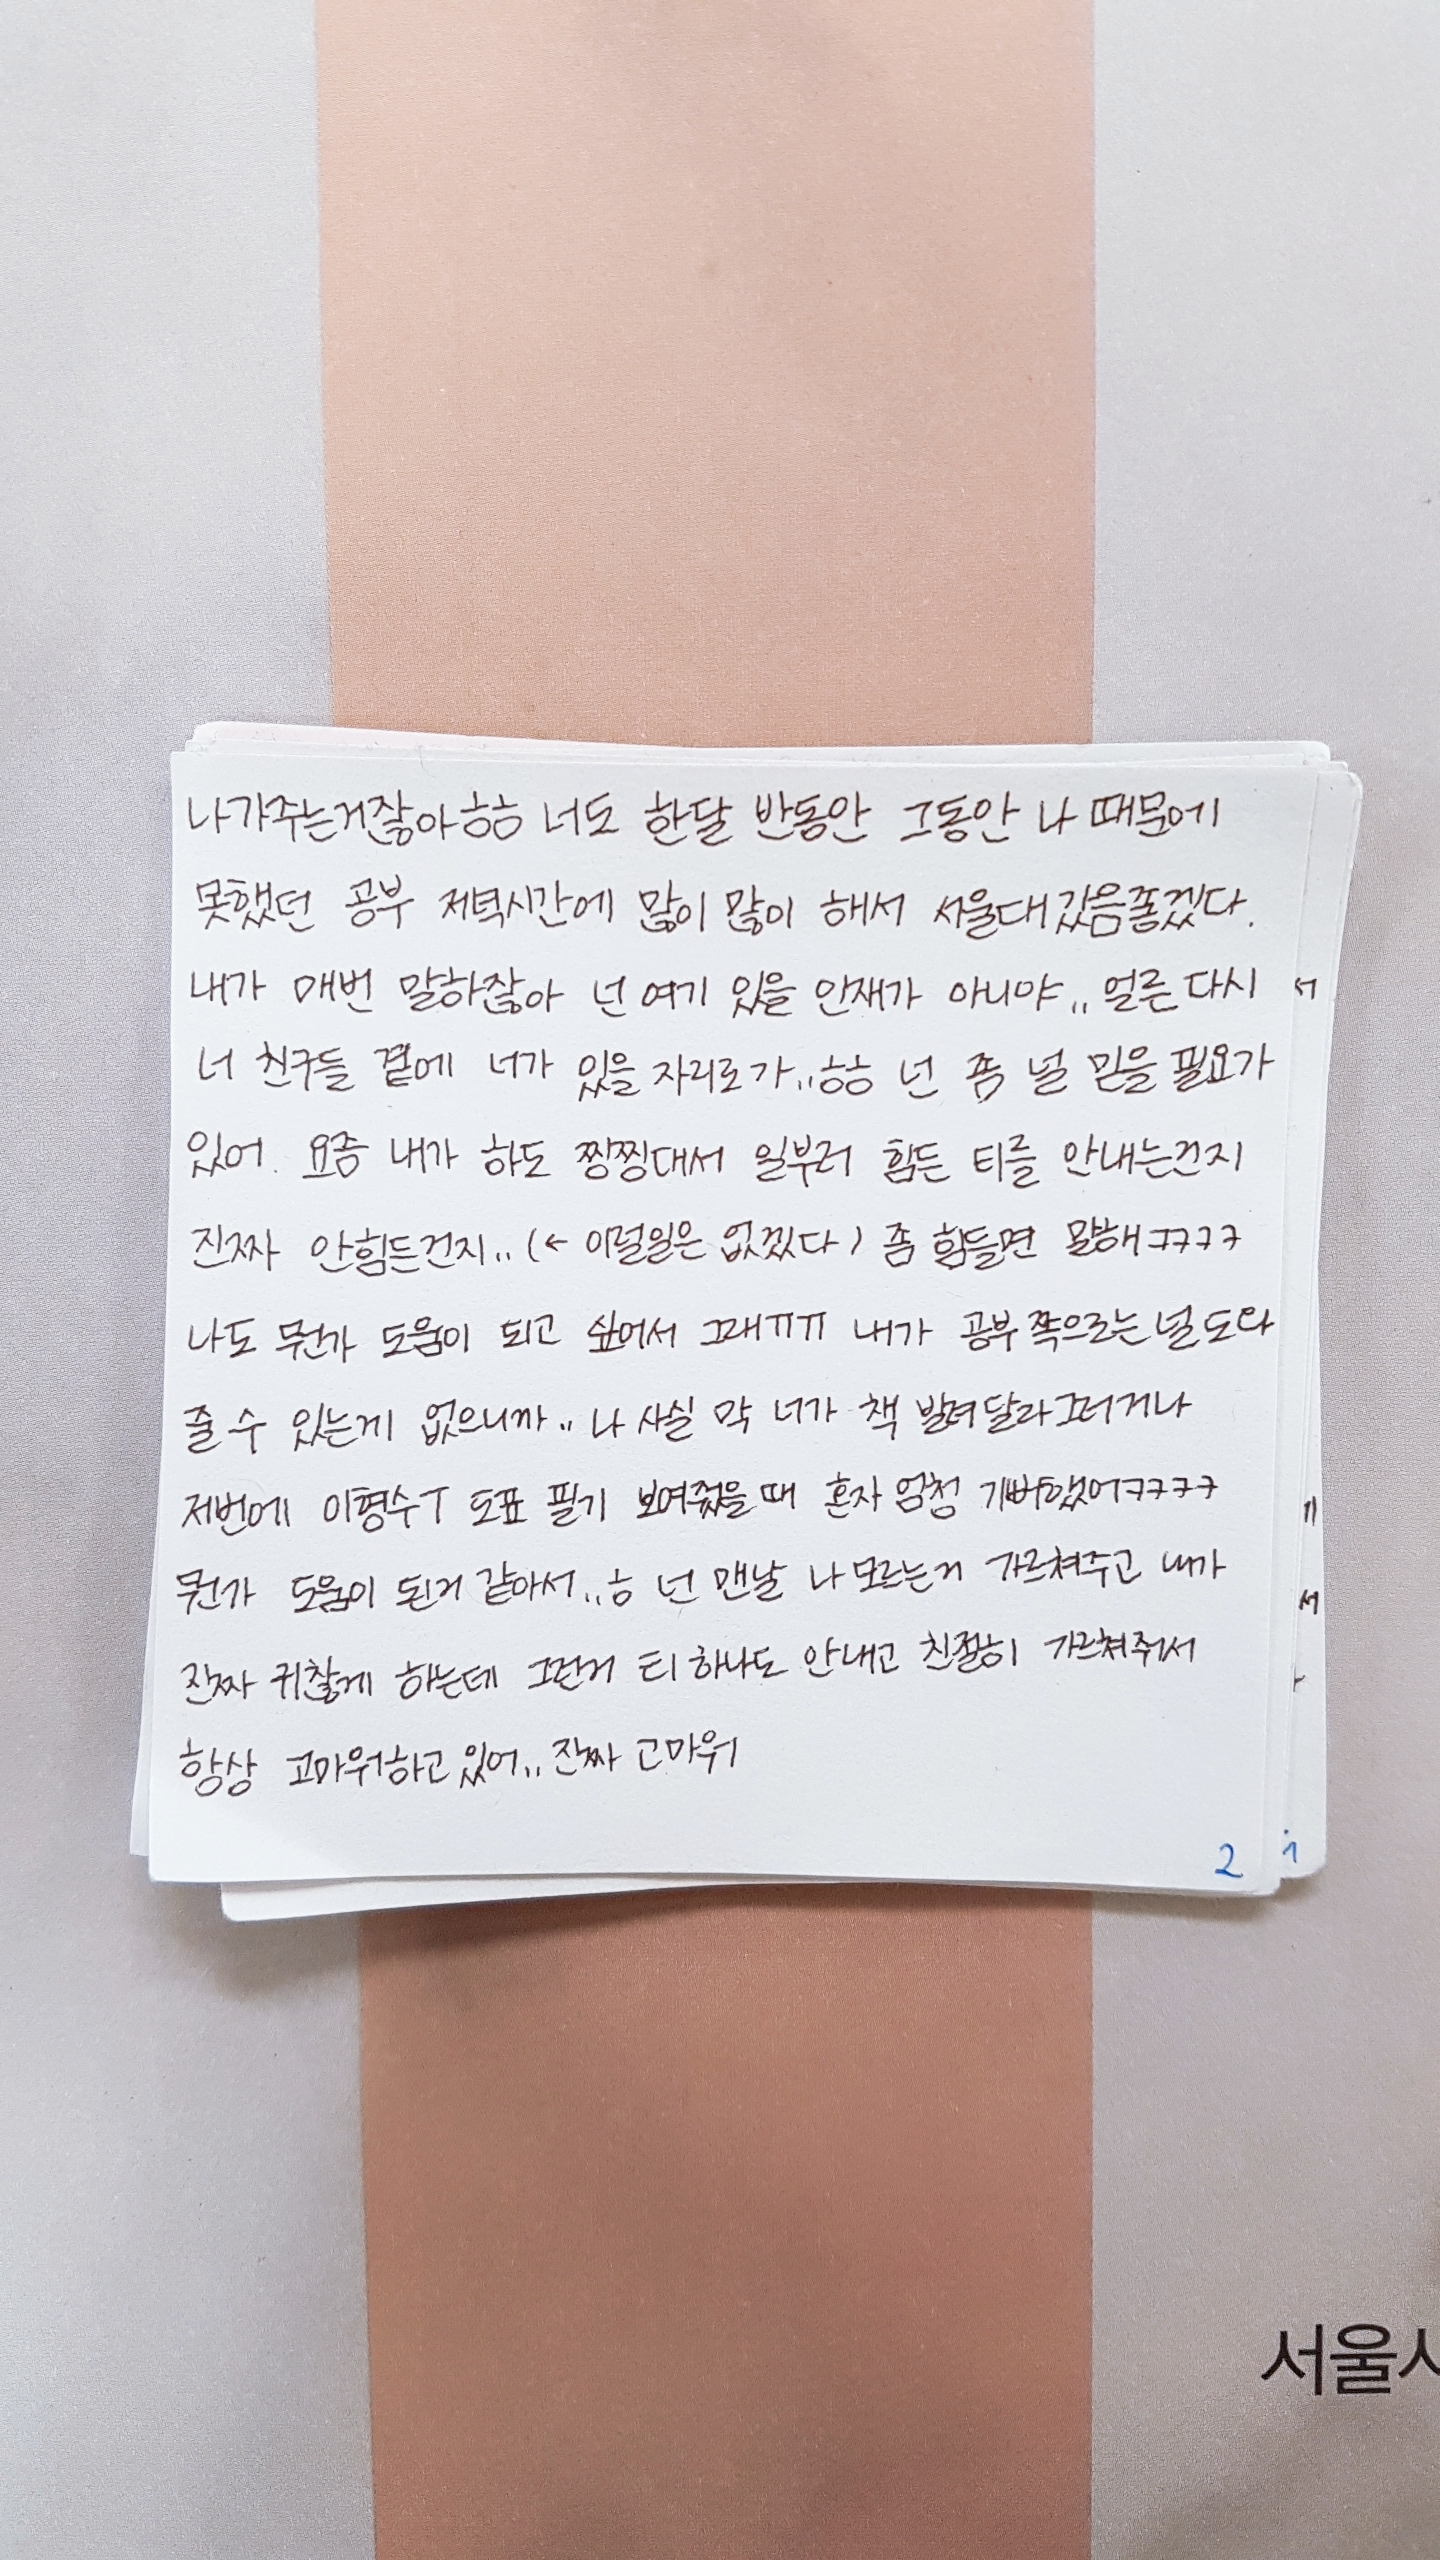 나가주는거잖아ㅎㅎ 너도 한달 반동안 그동안 나 때문에
못했던 공부 저녁시간에 많이 많이 해서 서울대갔음좋겠다.
내가 매번 말하잖아 넌 여기 있을 인재가 아니야.. 얼른 다시
너 친구들 곁에 너가 있을 자리로 가..ㅎㅎ 넌 좀 널 믿을 필요가
있어. 요즘 내가 하도 찡찡대서 일부러 힘든 티를 안내는건지
진짜 안힘든건지.. (← 이럴일은 없겠다) 좀 힘들면 말해ㅋㅋㅋㅋ
나도 뭔가 도움이 되고 싶어서 그래ㅠㅠ 내가 공부쪽으로는 널 도와
줄 수 있는게 없으니까.. 나 사실 막 너가 책 빌려달라그러거나
저번에 이형수T 도표 필기 보여줬을때 혼자 엄청 기뻐했어ㅋㅋㅋㅋ
뭔가 도움이 된거 같아서..ㅎ 넌 맨날 나 모르는거 가르쳐주고 내가
진짜 귀찮게 하는데 그런거 티 하나도 안내고 친절히 가르쳐줘서
항상 고마워하고 있어.. 진짜 고마워
2
1
서울시